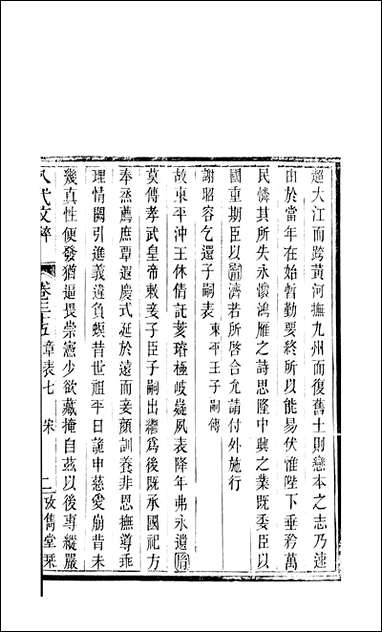 越大江而跨黃河撫九州而復舊土則戀本之志乃速
由於當年在始暫勤要終所以能易伏惟陛下垂矜萬
民憐其所失永懷鴻雁之詩思隆中興之業既委臣以
國重期臣以濟若所啓合允請付外施行
謝昭容乞還子嗣表 東平王子嗣傳
故東平沖王休倩託荄璿極岐嶷夙表降年弗永遺
莫傳孝武皇帝敕妾子臣子嗣出繼爲後既承國祀方
奉烝薦庶覃遐慶式延於遠而妾顏訓養非恩撫導乖
理情闕引進義違負螟昔世祖平日詭申慈愛崩背未
幾真性便發猶逼畏崇憲少欲藏掩自茲以後專縱嚴
八代文粹 卷三十五 章表七 宋 二 攷雋堂栞